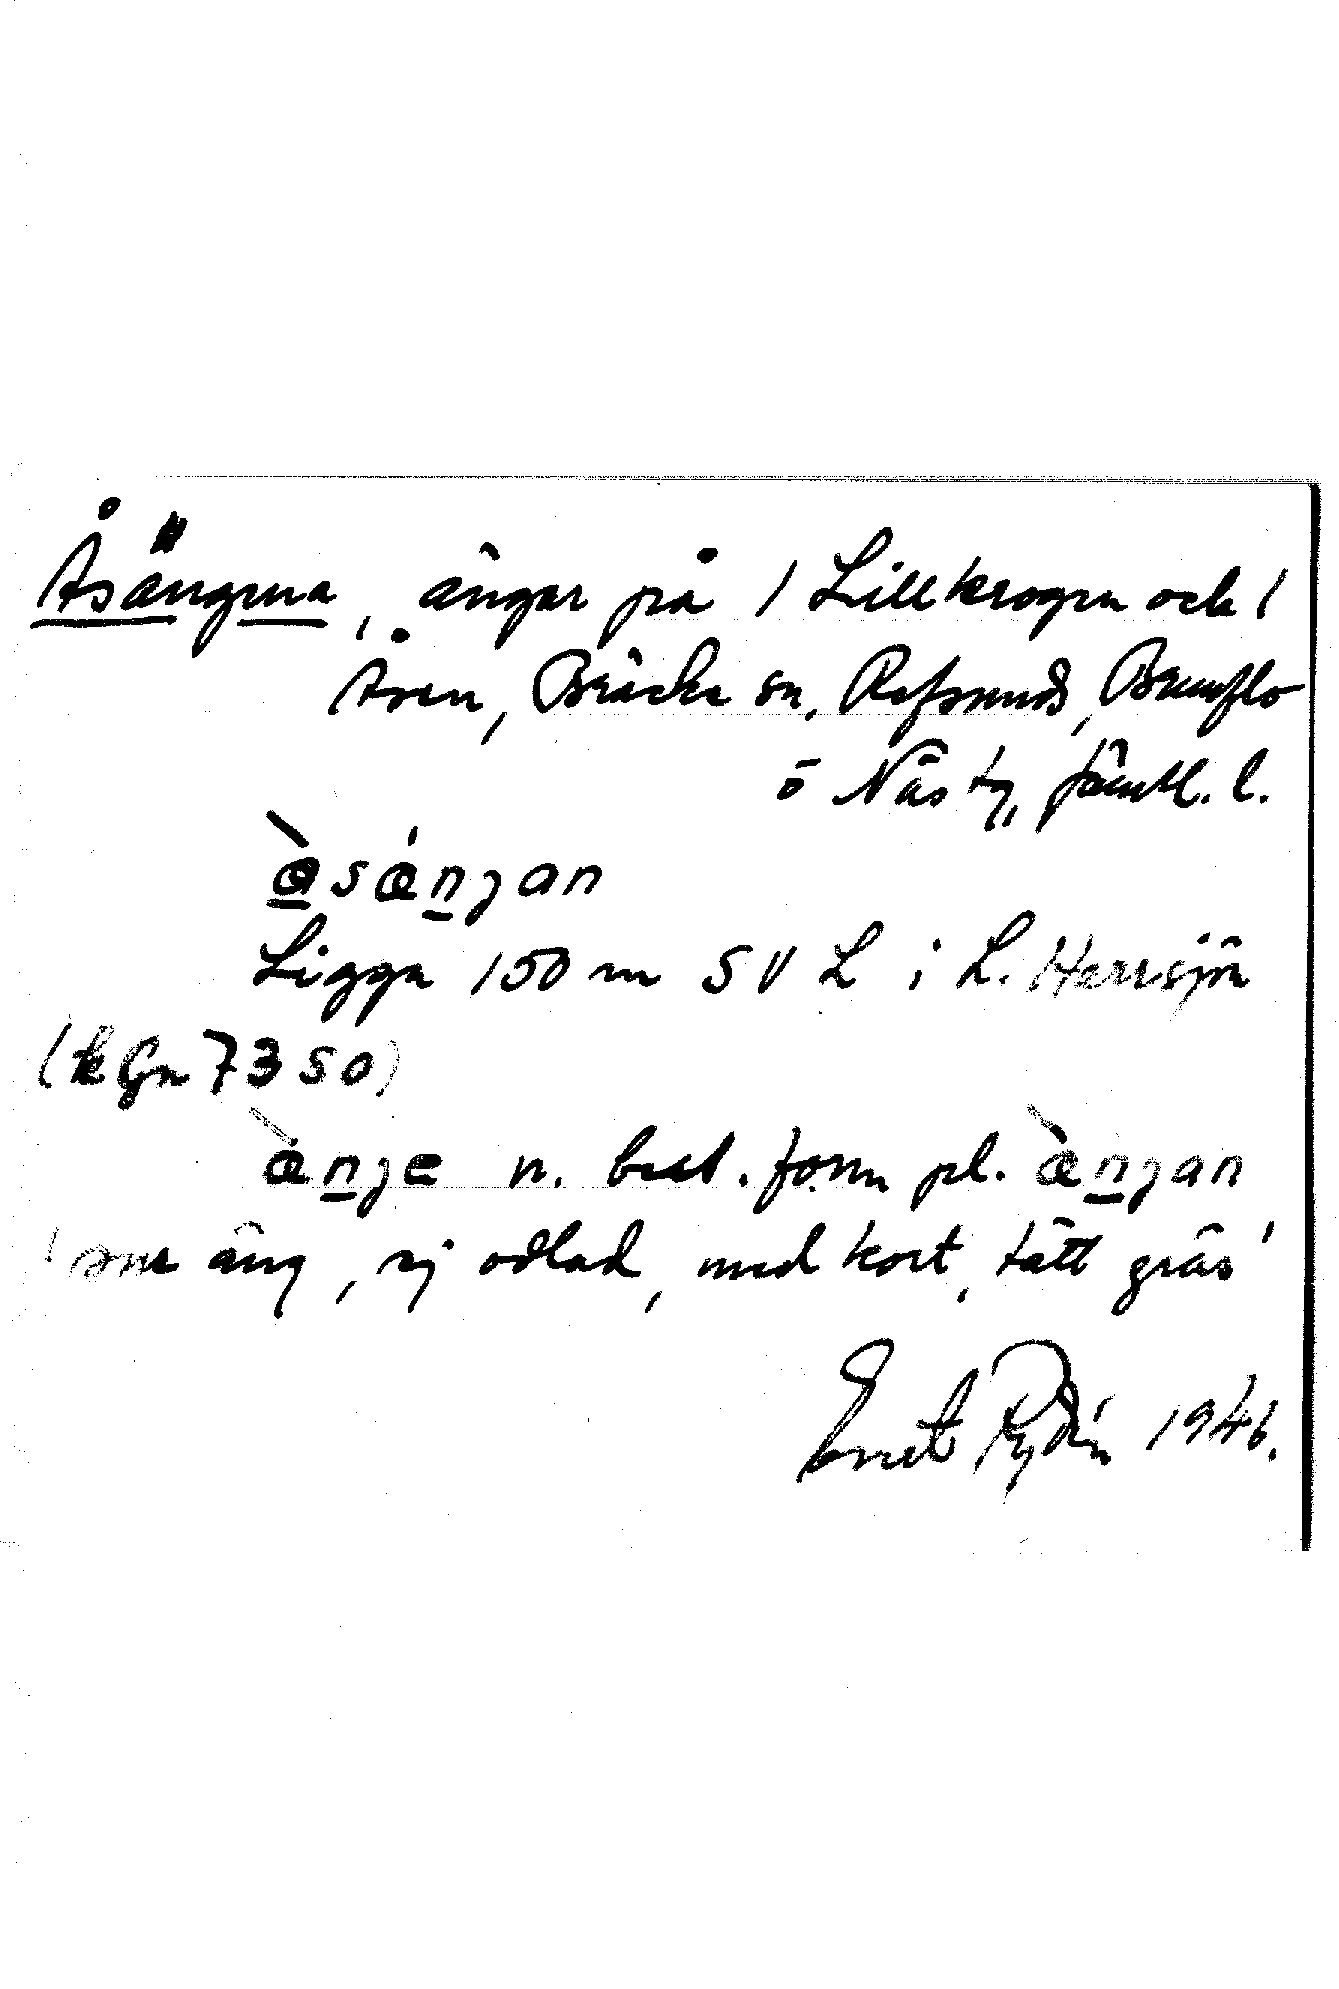 Åsängena, ängar på 1 Lillkrogen och 1
Åsen, Bräcke sn, Refsunds, Brunflo
o Näs tg, Jämtl. l.
àsǽnjan
Ligga 150 m SV L i L. Herrsjön
(kGn 7350)
æ̀nje n. best. form pl. æ̀njan
' äng, ej odlad, med kort, tätt gräs'
Ernst Rydén 1946.